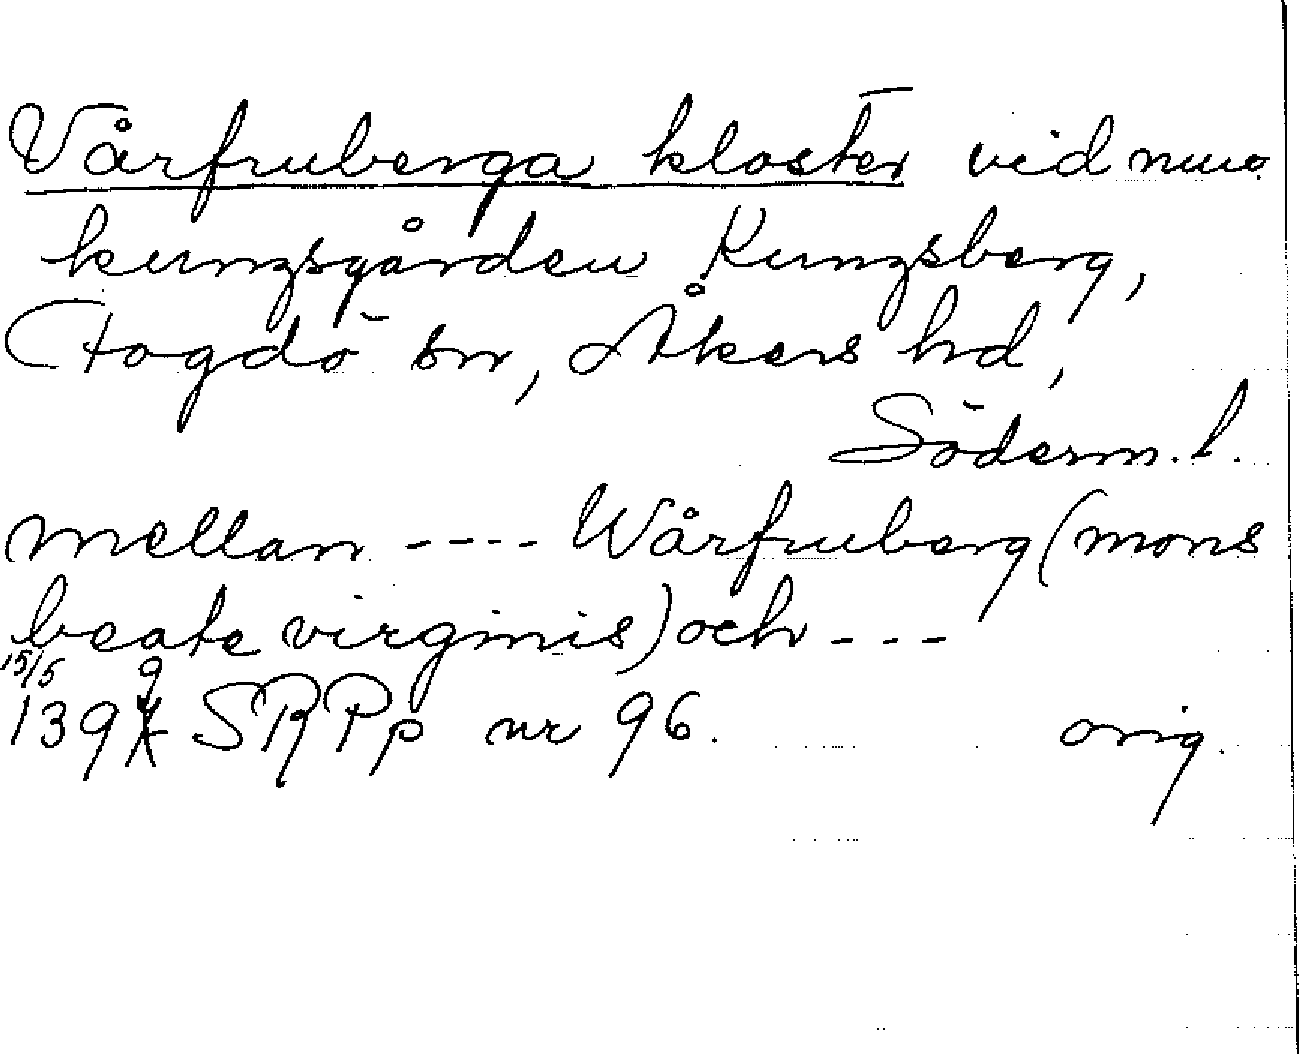 Vårfruberga kloster vid nuv.
kungsgården Kungsberg,
Fogdö sn, Åkers hd,
Söderm. l.
mellan ---- Wårfruberg (mons
beate virginis) och ---
15/5 9
139 SRPp nr 96. orig.